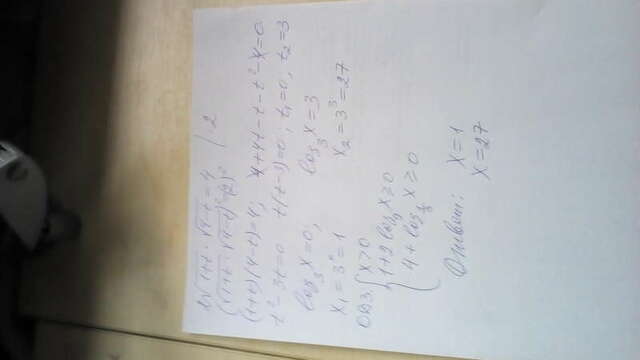 2√1+t · √4-t = 4 | : 2
(√1+t · √4-t)² = (2)²
(1+t)(4-t)=4; 4+4t-t-t²-4=0
t²-3t=0 t(t-3)=0, t₁=0, t₂=3
log₃x=0; log₃x=3
x₁=3⁰=1 x₂=3³=27
ОДЗ: { x>0
1+2log₉x≥0
4+log_{1/3}x≥0
Ответ: x=1
x=27